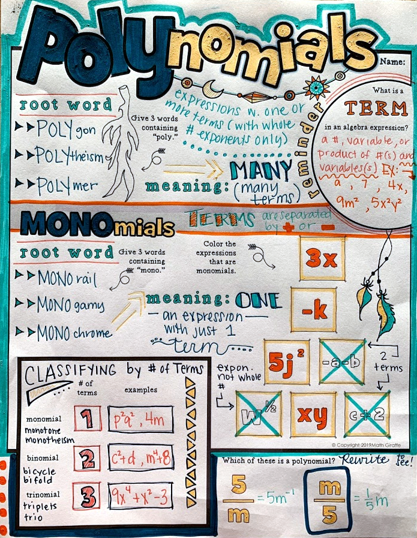 POLYnomials
Name:
root word
Give 3 words
containing
"poly."
POLYgon
POLYtheism
POLYmer
expressions w. one or
more terms (with whole
# exponents only)
meaning: MANY
(many
terms)
Reminder
What is a
TERM
in an algebra expression?
a #, variable, or
product of #(s) and
variables(s) EX:
a, 7, 4x,
9m², 5x²y²
MONOmials
TERMS are separated
by + or -
root word
Give 3 words
containing
"mono."
MONOrail
MONOgamy
MONOchrome
Color the
expressions
that are
monomials.
meaning: ONE
- an expression
with just 1
term
3x
-k
5j²
-a-b
expon.
not whole
#
2
terms
w^1/2
xy
c+2
© Copyright 2019 Math Giraffe
CLASSIFYING by # of Terms
# of
terms
examples
monomial
monotone
monotheism
1
p²q², 4m
binomial
bicycle
bifold
2
c²+d, m⁴+8
trinomial
triplets
trio
3
9x⁴+y²-3
Which of these is a polynomial?
Rewrite to
see!
5/m = 5m⁻¹
m/5 = 1/5 m